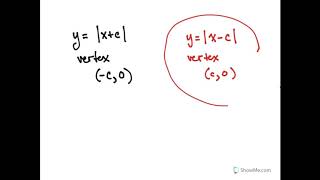 y = |x+c|
vertex
(-c, 0)
y = |x-c|
vertex
(c, 0)
ShowMe.com